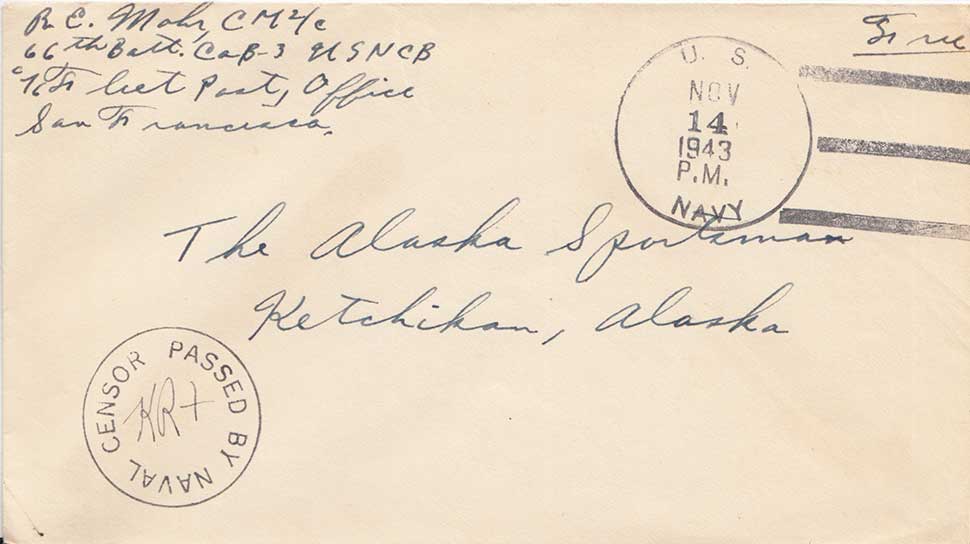 R. C. Mohr, CM2/c
66th Batt. Co B-3 USNCB
c/o Fleet Post, Office
San Francisco.
Free
U. S.
NOV
14
1943
P.M.
NAVY
The Alaska Sportsman
Ketchikan, Alaska
PASSED BY NAVAL CENSOR